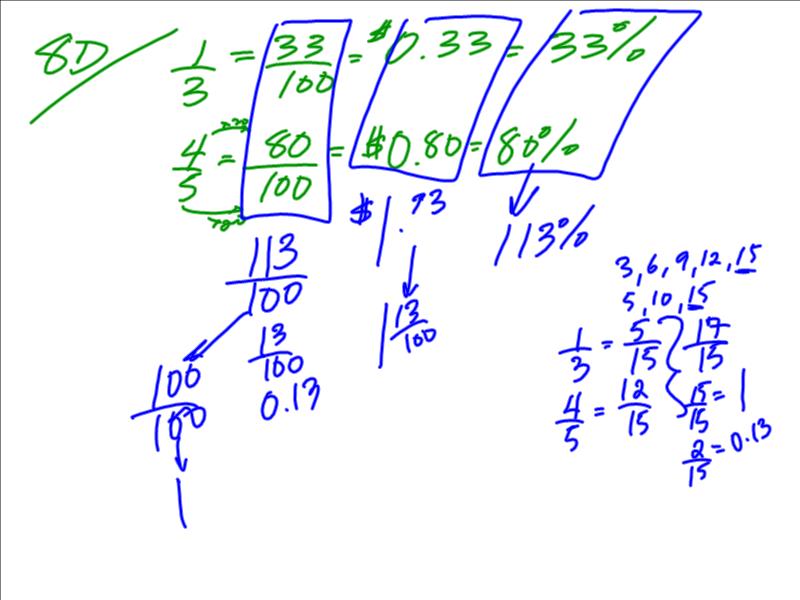 8D
1/3 = 33/100 = $0.33 = 33%
4/5 = 80/100 = $0.80 = 80%
113/100
$1.13
113%
100/100
13/100
0.13
1 13/100
1
3, 6, 9, 12, 15
5, 10, 15
1/3 = 5/15
4/5 = 12/15
17/15
15/15 = 1
2/15 = 0.13